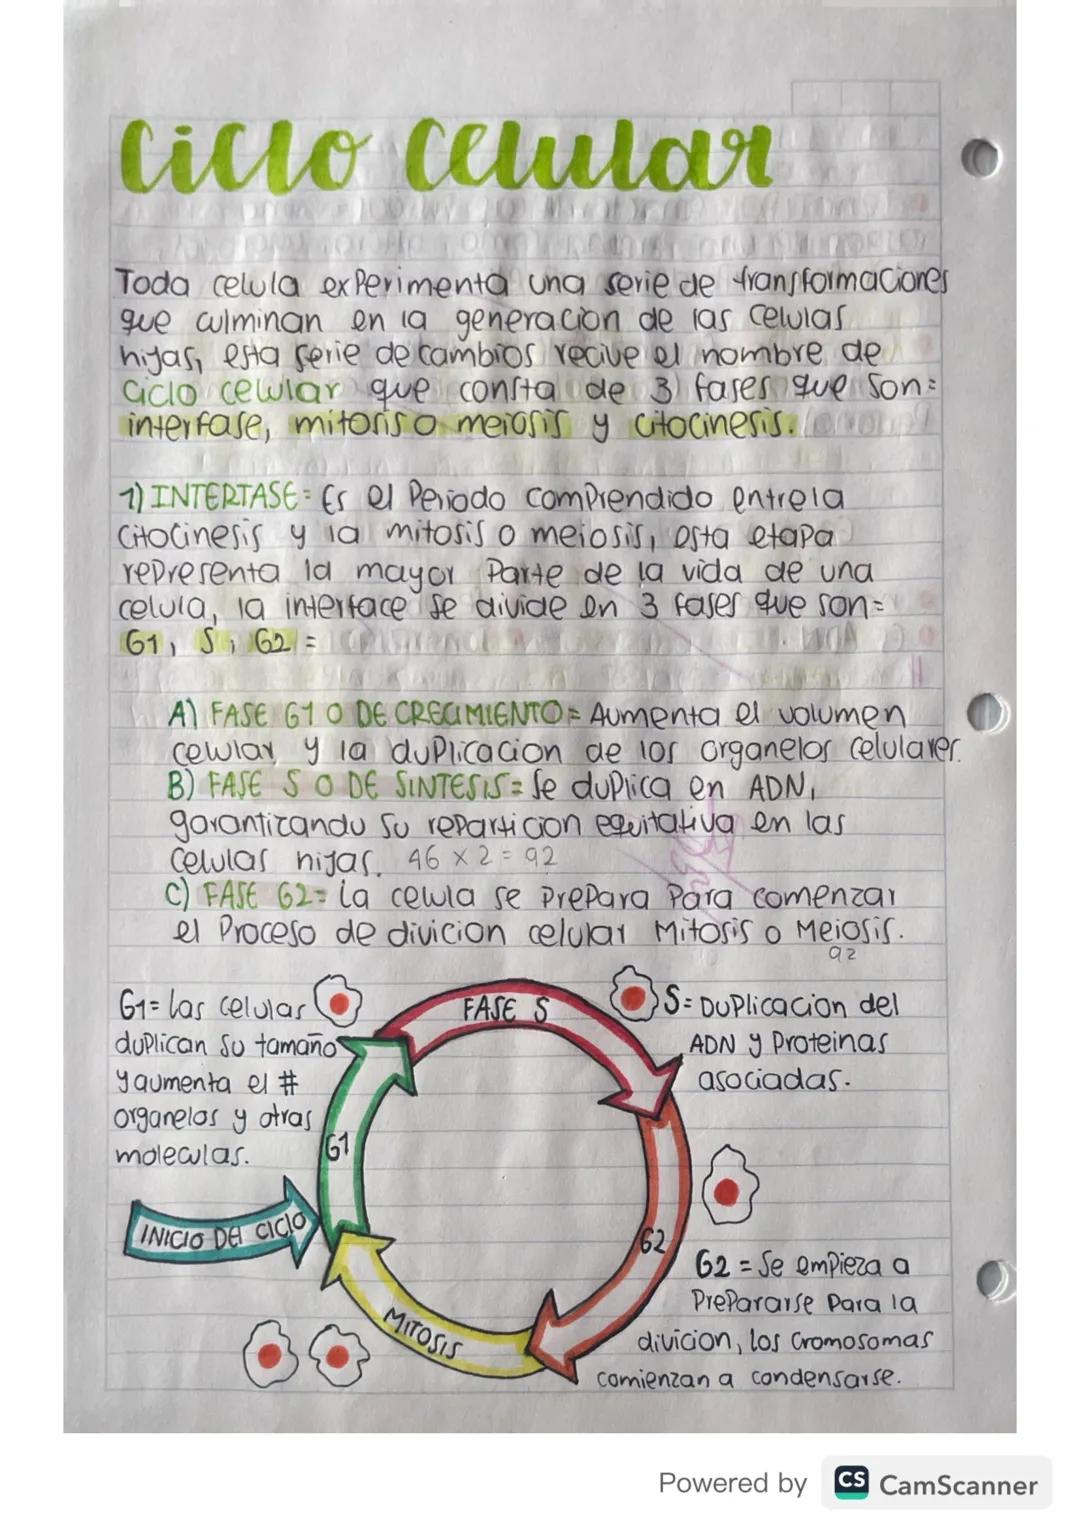 Ciclo Celular
Toda celula experimenta una serie de transformaciones
que culminan en la generacion de las celulas
hijas, esta serie de cambios recive el nombre de
ciclo celular que consta de 3 fases que son:
interfase, mitosis o meiosis y citocinesis.
1) INTERTASE= Es el Periodo comprendido entre la
citocinesis y la mitosis o meiosis, esta etapa
representa la mayor Parte de la vida de una
celula, la interface se divide en 3 fases que son=
G1, S, G2 =
A) FASE G1 O DE CRECIMIENTO= Aumenta el volumen
celular, y la duplicacion de los organelos celulares.
B) FASE S O DE SINTESIS= Se duplica en ADN,
garantizando su reparticion equitativa en las
celulas hijas. 46 x 2 = 92
C) FASE G2= La celula se prepara Para comenzar
el Proceso de divicion celular Mitosis o Meiosis.
92
G1= Las celular
duplican su tamaño
y aumenta el #
organelos y otras
moleculas.
FASE S
S= Duplicacion del
ADN y Proteinas
asociadas.
G1
INICIO DEL CICLO
G2
MITOSIS
G2 = Se empieza a
Prepararse Para la
divicion, los cromosomas
comienzan a condensarse.
Powered by CS CamScanner